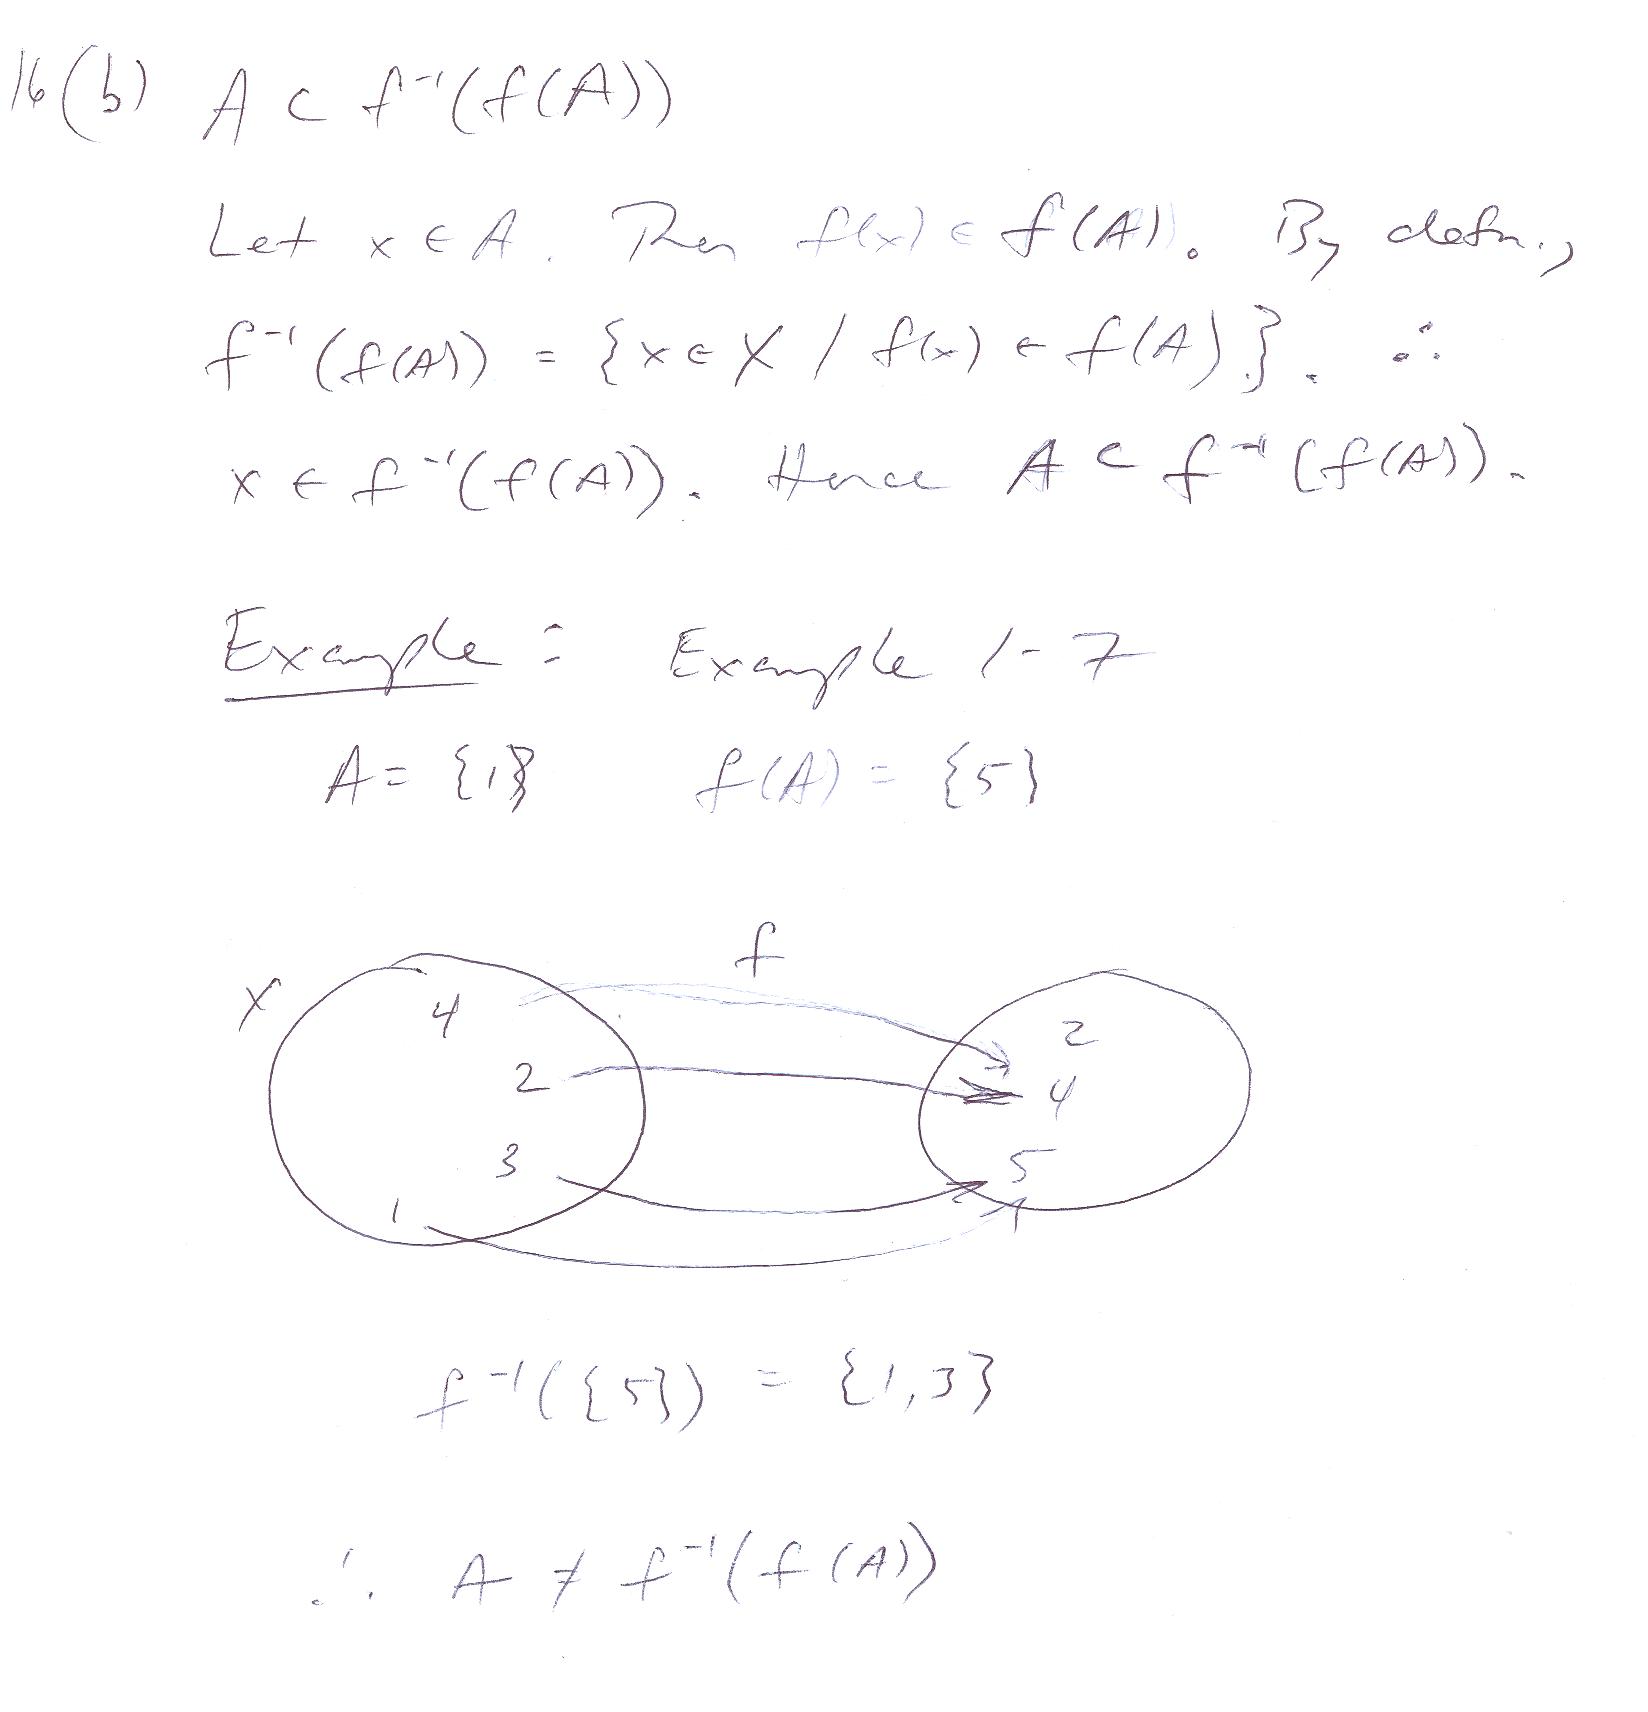 16(b) A ⊂ f⁻¹(f(A))
Let x ∈ A. Then f(x) ∈ f(A). By defn.,
f⁻¹(f(A)) = {x ∈ X / f(x) ∈ f(A)}. ∴
x ∈ f⁻¹(f(A)). Hence A ⊂ f⁻¹(f(A)).
Example: Example 1-7
A = {1} f(A) = {5}
f
X
4
2
3
1
2
4
5
f⁻¹({5}) = {1,3}
∴ A ≠ f⁻¹(f(A))